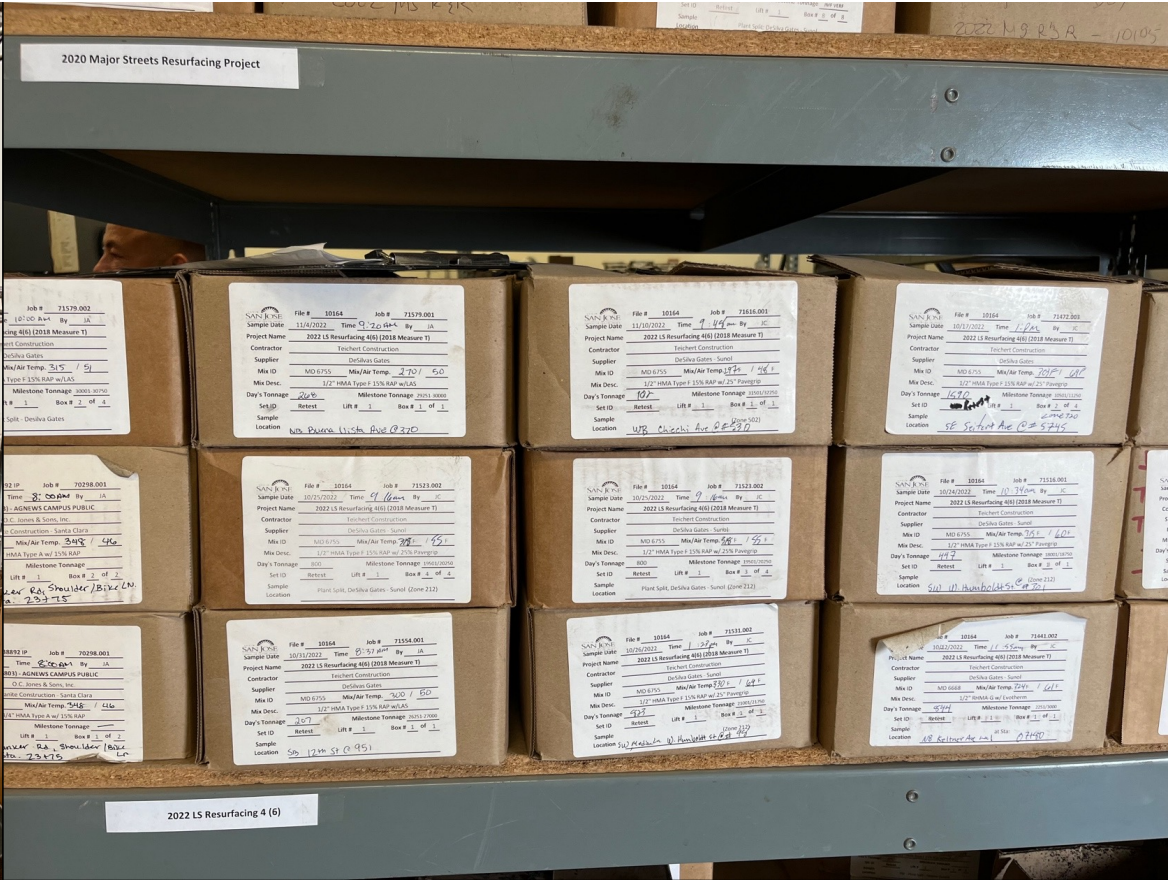 2022 MS R&R - 40105
Set ID Lift # 1
Sample
Location Plant Split-DeSilva Gates - Sunol
2020 Major Streets Resurfacing Project
Job # 71579.002
10:00 AM By JA
cing 4(6) (2018 Measure T)
ert Construction
DeSilva Gates
Mix/Air Temp. 315 / 51
Type F 15% RAP w/LAS
Milestone Tonnage 30001-30750
# 1 Box # 2 of 4
Split - Desilva Gates
SAN JOSE File # 10164 Job # 71579.001
Sample Date 11/4/2022 Time 9:20 AM By JA
Project Name 2022 LS Resurfacing 4(6) (2018 Measure T)
Contractor Teichert Construction
Supplier DeSilvas Gates
Mix ID MD 6755 Mix/Air Temp. 270 / 50
Mix Desc. 1/2" HMA Type F 15% RAP w/LAS
Day's Tonnage 268 Milestone Tonnage 29251-30000
Set ID Retest Lift # 1 Box # 1 of 1
Sample
Location NB Buena Vista Ave @ 370
SAN JOSE File # 10164 Job # 71616.001
Sample Date 11/10/2022 Time 9:49am By JC
Project Name 2022 LS Resurfacing 4(6) (2018 Measure T)
Contractor Teichert Construction
Supplier DeSilva Gates - Sunol
Mix ID MD 6755 Mix/Air Temp.
Mix Desc. 1/2" HMA Type F 15% RAP w/.25" Pavegrip
Day's Tonnage Milestone Tonnage 31501/32250
Set ID Retest Lift # 1 Box # 1 of 1
Sample (Zone 502)
Location WB Chiechi Ave @ #230
SAN JOSE File # 10164 Job # 71472.001
Sample Date 10/17/2022 Time 1:pm By JC
Project Name 2022 LS Resurfacing 4(6) (2018 Measure T)
Contractor Teichert Construction
Supplier DeSilva Gates - Sunol
Mix ID MD 6755 Mix/Air Temp.
Mix Desc. 1/2" HMA Type F 15% RAP w/.25" Pavegrip
Day's Tonnage 1590 Milestone Tonnage 10501/11250
Set ID Lift # 1 Box # 2 of 4
Sample
Location SB Seifert Ave @ # 5745
92 IP Job # 70298.001
Time 8:00 AM By JA
3) - AGNEWS CAMPUS PUBLIC
O.C. Jones & Sons, Inc.
e Construction - Santa Clara
Mix/Air Temp. 348 / 46
HMA Type A w/ 15% RAP
Milestone Tonnage
Lift # 1 Box # 2 of 2
ver Rd, Shoulder/Bike LN.
ta. 23+75
SAN JOSE File # 10164 Job # 71523.002
Sample Date 10/25/2022 Time 9:16am By JC
Project Name 2022 LS Resurfacing 4(6) (2018 Measure T)
Contractor Teichert Construction
Supplier DeSilva Gates - Sunol
Mix ID MD 6755 Mix/Air Temp.
Mix Desc. 1/2" HMA Type F 15% RAP w/.25% Pavegrip
Day's Tonnage 800 Milestone Tonnage 19501/20250
Set ID Retest Lift # 1 Box # 3 of 4
Sample
Location Plant Split, DeSilva Gates - Sunol (Zone 212)
SAN JOSE File # 10164 Job # 71523.002
Sample Date 10/25/2022 Time 9:16am By JC
Project Name 2022 LS Resurfacing 4(6) (2018 Measure T)
Contractor Teichert Construction
Supplier DeSilva Gates - Sunol
Mix ID MD 6755 Mix/Air Temp.
Mix Desc. 1/2" HMA Type F 15% RAP w/.25% Pavegrip
Day's Tonnage 800 Milestone Tonnage 19501/20250
Set ID Retest Lift # 1 Box # 4 of 4
Sample
Location Plant Split, DeSilva Gates - Sunol (Zone 212)
SAN JOSE File # 10164 Job # 71516.001
Sample Date 10/24/2022 Time 10:34am By JC
Project Name 2022 LS Resurfacing 4(6) (2018 Measure T)
Contractor Teichert Construction
Supplier DeSilva Gates - Sunol
Mix ID MD 6755 Mix/Air Temp.
Mix Desc. 1/2" HMA Type F 15% RAP w/.25" Pavegrip
Day's Tonnage 497 Milestone Tonnage
Set ID Retest Lift # 1 Box # of 1
Sample (Zone 212)
Location W. Humboldt St @
38892 IP Job # 70298.001
Time 8:00 AM By JA
803) - AGNEWS CAMPUS PUBLIC
O.C. Jones & Sons, Inc.
anite Construction - Santa Clara
Mix/Air Temp. 348 / 46
/4" HMA Type A w/ 15% RAP
Milestone Tonnage
Lift # 1 Box # 1 of 2
Rd, Shoulder/Bike
ta. 23+75 Ln
SAN JOSE File # 10164 Job # 71554.001
Sample Date 10/31/2022 Time 8:37 AM By JA
Project Name 2022 LS Resurfacing 4(6) (2018 Measure T)
Contractor Teichert Construction
Supplier DeSilvas Gates
Mix ID MD 6755 Mix/Air Temp. 300 / 50
Mix Desc. 1/2" HMA Type F 15% RAP w/LAS
Day's Tonnage 207 Milestone Tonnage 26251-27000
Set ID Retest Lift # 1 Box # 1 of 1
Sample
Location SB 12th St @ 951
SAN JOSE File # 10164 Job # 71531.002
Sample Date 10/26/2022 Time By JC
Project Name 2022 LS Resurfacing 4(6) (2018 Measure T)
Contractor Teichert Construction
Supplier DeSilva Gates - Sunol
Mix ID MD 6755 Mix/Air Temp.
Mix Desc. 1/2" HMA Type F 15% RAP w/.25" Pavegrip
Day's Tonnage Milestone Tonnage
Set ID Retest Lift # 1 Box # 1 of 1
Sample (Zone 212)
Location W. Humboldt St @
# 10164 Job # 71441.001
Sample Date 10/22/2022 Time By JC
Project Name 2022 LS Resurfacing 4(6) (2018 Measure T)
Contractor Teichert Construction
Supplier DeSilva Gates - Sunol
Mix ID MD 6668 Mix/Air Temp.
Mix Desc. 1/2" RHMA-G w/ Evotherm
Day's Tonnage 544 Milestone Tonnage 2251/3000
Set ID Retest Lift # 1 Box # 1 of 1
Sample at Sta:
Location NB
2022 LS Resurfacing 4 (6)